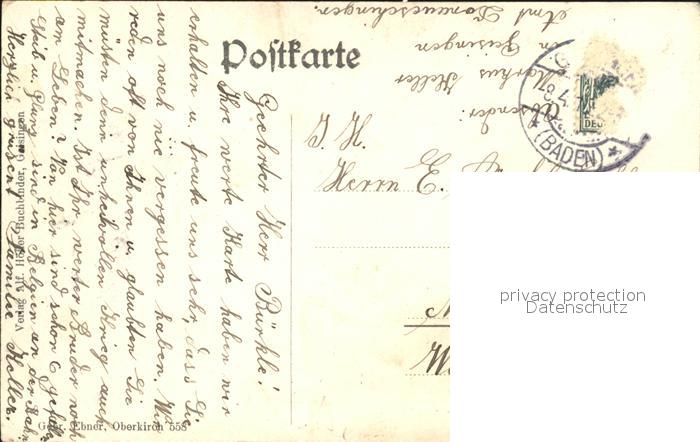 Postkarte
Absender:
Markus Keller
in Geisingen
Amt Donaueschingen.
(BADEN)
S. H.
Herrn E.
Geehrter Herr Bürkle!
Ihre werte Karte haben wir
erhalten u. freute uns sehr, dass Sie
uns noch nie vergessen haben. Wir
reden oft von Ihnen u. glaubten Sie
müsten denn unheilvollen Krieg auch
mitmachen. Ist Ihr werter Bruder noch
am Leben? Von hier sind schon 6 gefall.
sind in Belgien an der Bahn
Herzlich grüsent Familie Keller.
Verlag Alf. Höfler Buchbinder, Geisingen
Gebr. Ebner, Oberkirch 558
privacy protection
Datenschutz